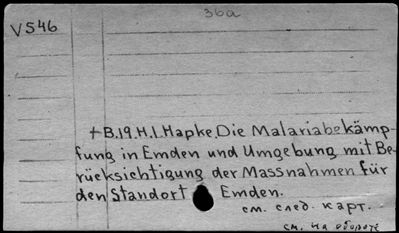 36a
V546
+B.19.H.1.Hapke.Die Malariabekämp-
fung in Emden und Umgebung mit Be-
rücksichtigung der Massnahmen für
den Standort Emden.
см. след. карт.
см. на обороте